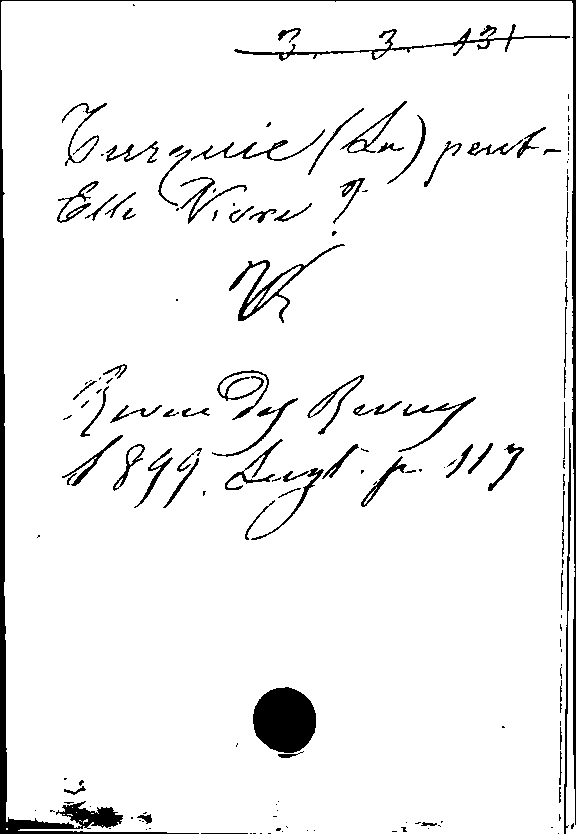 3. 3. 131
Turquie (La) peut-
Elle Vivre ?
VR
Revue Des Revues
1899. Sept. p. 117